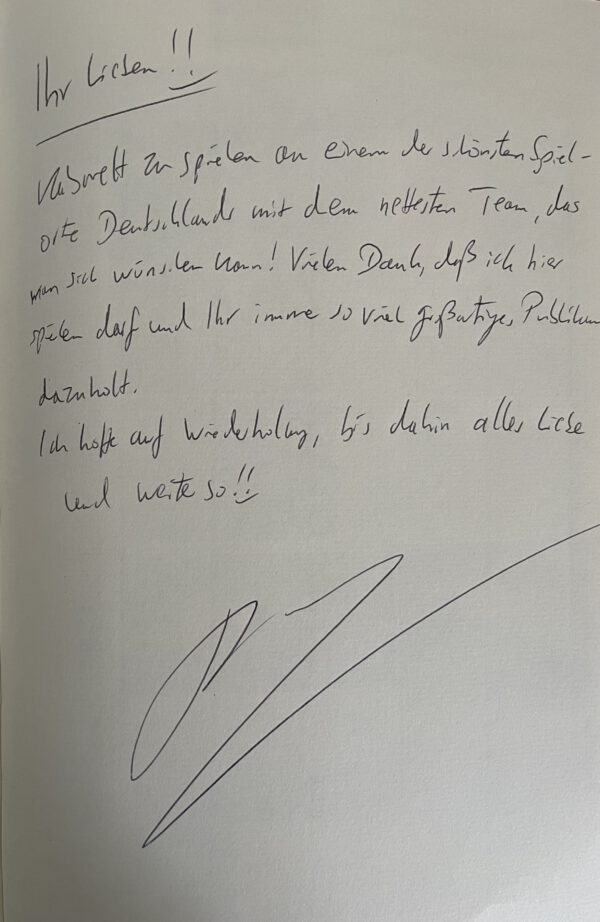 Ihr Lieben!!
Kabarett zu spielen an einem der schönsten Spiel-
orte Deutschlands mit dem nettesten Team, das
man sich wünschen kann! Vielen Dank, daß ich hier
spielen darf und Ihr immer so viel großartiges Publikum
dazuholt.
Ich hoffe auf Wiederholung, bis dahin alles Liebe
und weiter so!!